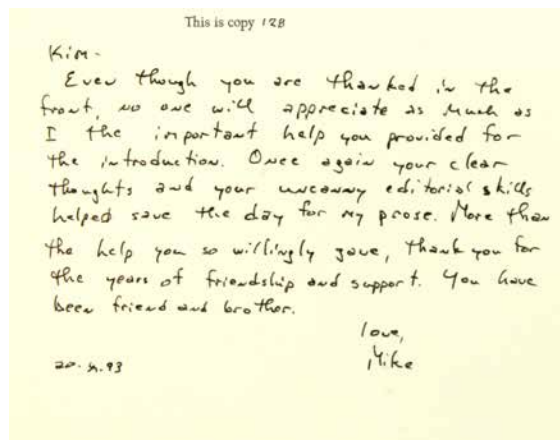 This is copy 128
Kim-
Even though you are thanked in the
front, no one will appreciate as much as
I the important help you provided for
the introduction. Once again your clear
thoughts and your uncanny editorial skills
helped save the day for my prose. More than
the help you so willingly gave, thank you for
the years of friendship and support. You have
been friend and brother.
love,
Mike